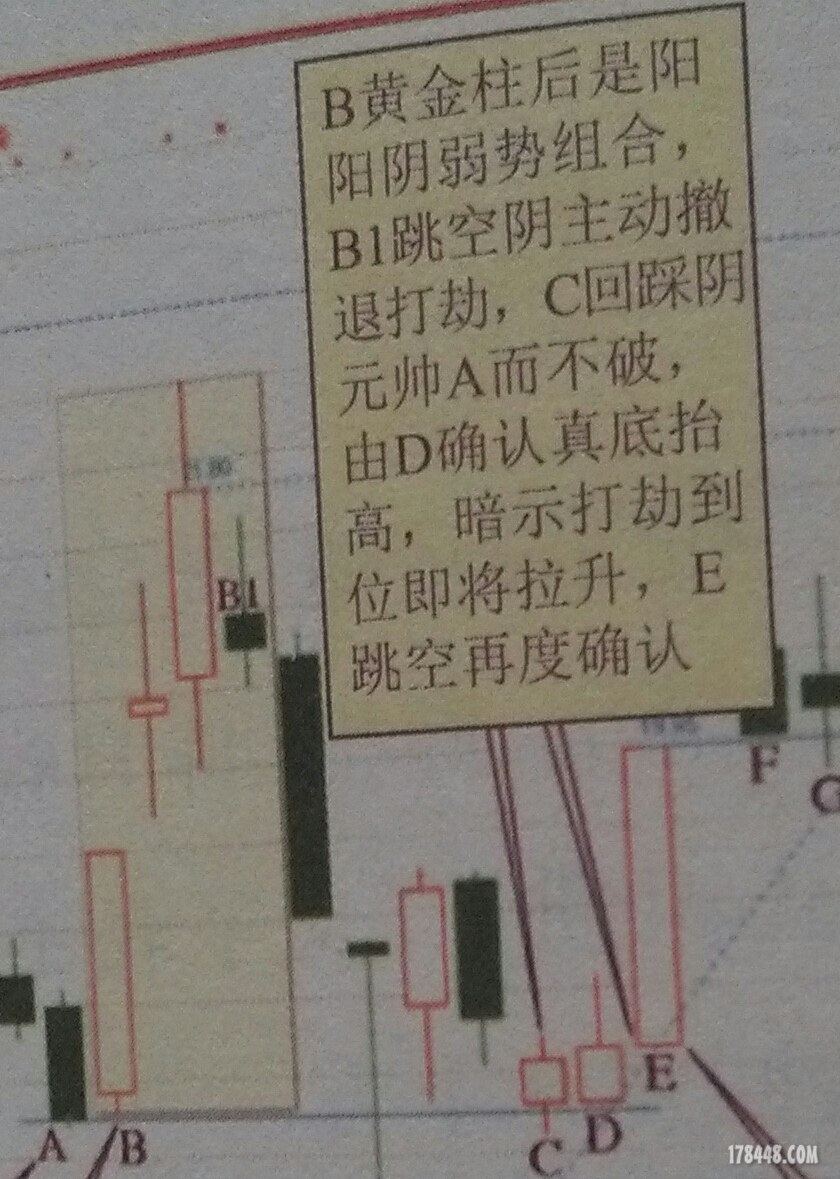 B黄金柱后是阳
阳阴弱势组合，
B1跳空阴主动撤
退打劫，C回踩阴
元帅A而不破，
由D确认真底抬
高，暗示打劫到
位即将拉升，E
跳空再度确认
B1
F
G
E
A
B
C
D
178448.COM